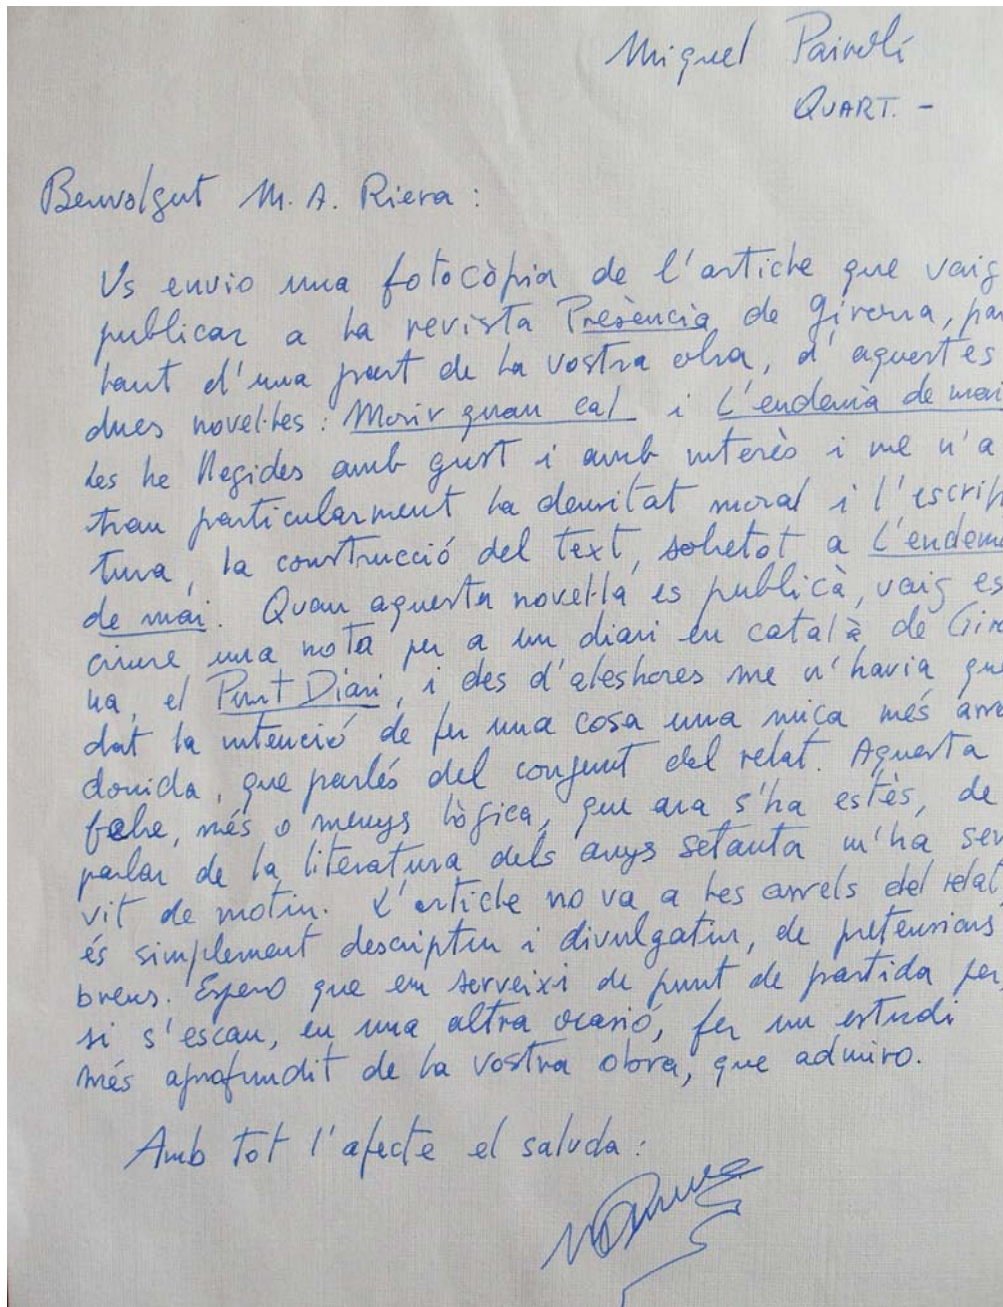 Miquel Pairolí
QUART. -
Benvolgut M. A. Riera :
Us envio una fotocòpia de l'article que vaig
publicar a la revista Presència, de Girona, par
lant d'una part de la vostra obra, d'aquestes
dues novel·les : Morir quan cal i L'endemà de mai
les he llegides amb gust i amb interès i me n'a
trau particularment la densitat moral i l'escrip
tura, la construcció del text, sobretot a L'endemà
de mai. Quan aquesta novel·la es publicà, vaig es
criure una nota per a un diari en català de Giro
na, el Punt Diari, i des d'aleshores me n'havia que
dat la intenció de fer una cosa una mica més arro
donida, que parlés del conjunt del relat. Aquesta
febre, més o menys lògica, que ara s'ha estès, de
parlar de la literatura dels anys setanta m'ha ser
vit de motiu. L'article no va a les arrels del relat,
és simplement descriptiu i divulgatiu, de pretensions
breus. Espero que em serveixi de punt de partida per,
si s'escau, en una altra ocasió, fer un estudi
més aprofundit de la vostra obra, que admiro.
Amb tot l'afecte el saluda :